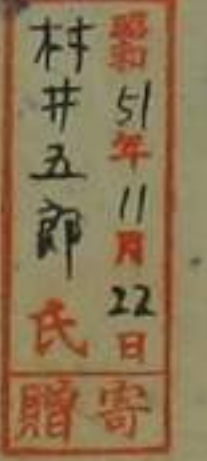 昭和51年11月22日
村井五郎氏
寄贈